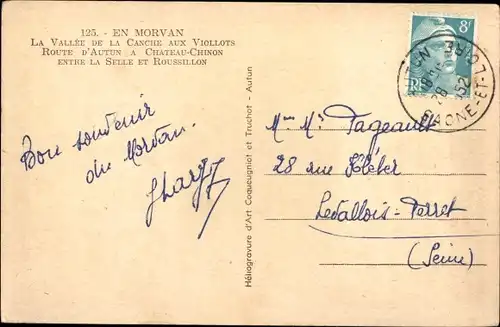 125. - EN MORVAN
LA VALLÉE DE LA CANCHE AUX VIOLLOTS
ROUTE D'AUTUN A CHATEAU-CHINON
ENTRE LA SELLE ET ROUSSILLON
Bon souvenir
du Morvan.
Héliogravure d'Art Coqueugniot et Truchot - Autun
8f
RF
AUTUN
28
52
SAONE-ET-LOIRE
Mme Mr Pageault
28 rue Kléber
Levallois-Perret
(Seine)